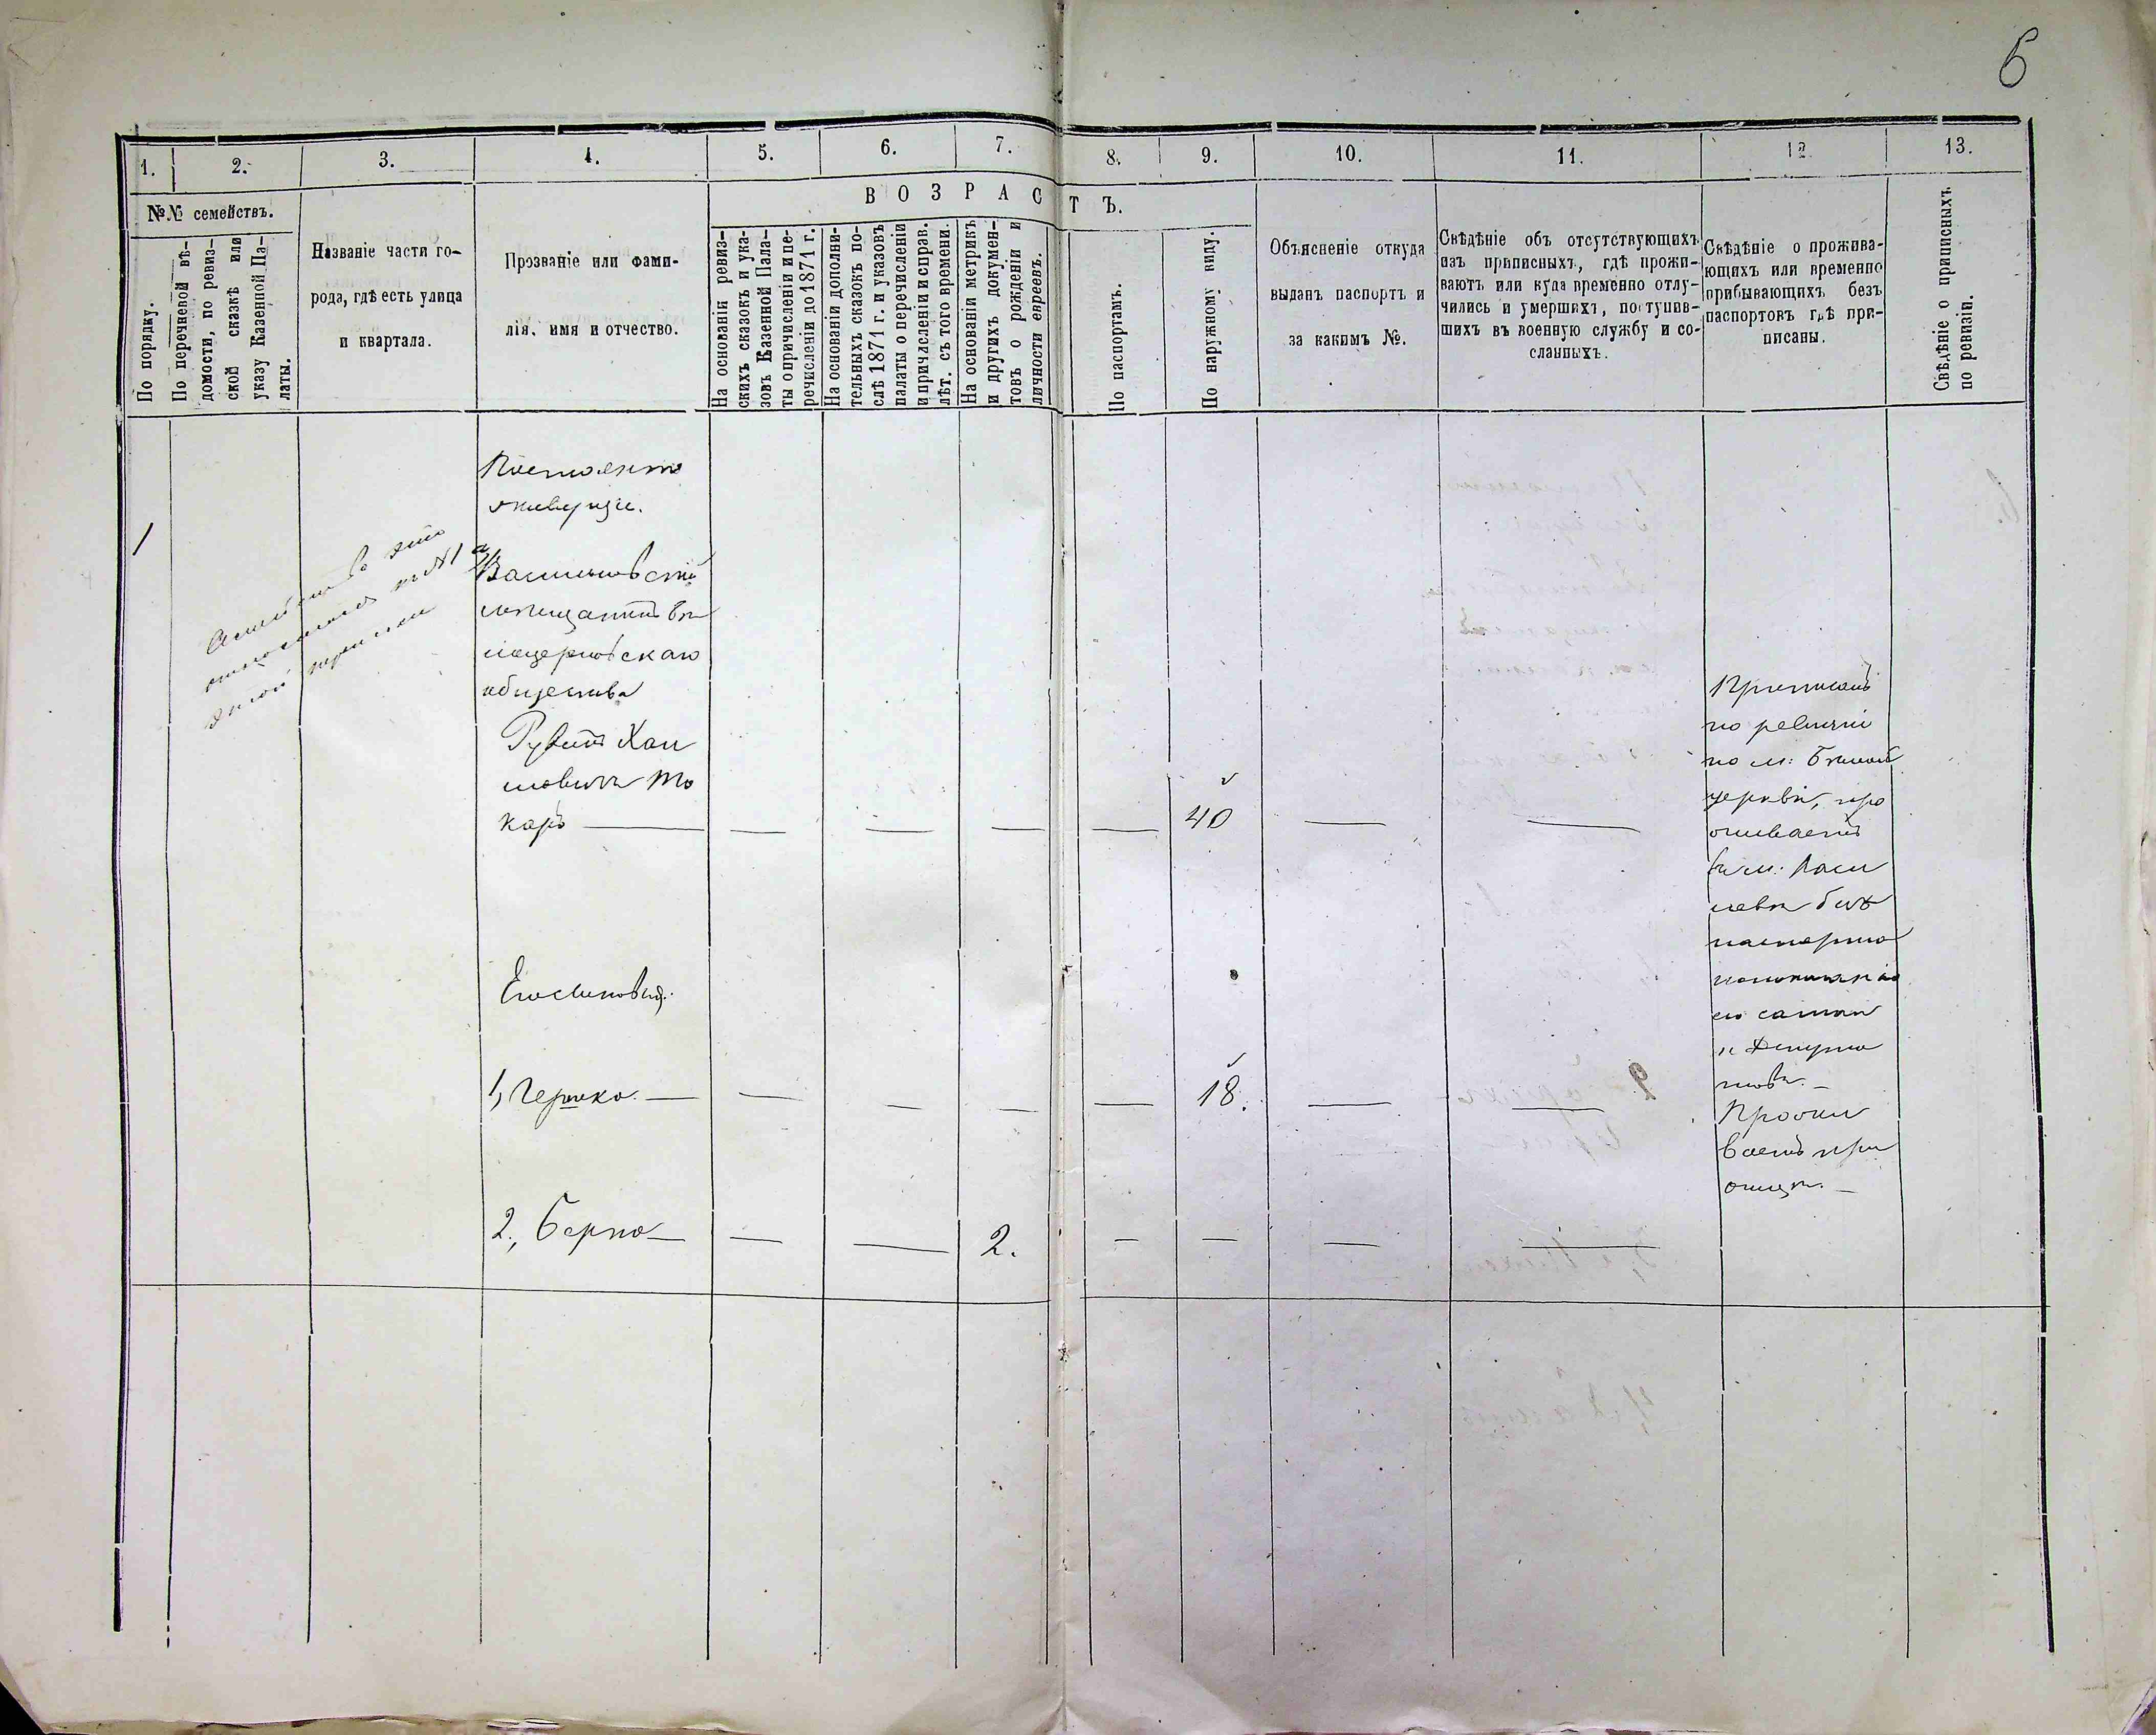 6
1. 2. 3. 4. 5. 6. 7. 8. 9. 10. 11. 12 13.
№№ семействъ.
По порядку.
По перечневой вѣ-
домости, по ревиз-
ской сказкѣ или
указу Казенной Па-
латы.
Названіе части го-
рода, гдѣ есть улица
и квартала.
Прозваніе или фами-
лія, имя и отчество.
ВОЗРАСТЪ.
На основаніи ревиз-
скихъ сказокъ и ука-
зовъ Казенной Пала-
ты о причисленіи и пе-
речисленіи до 1871 г.
На основаніи дополни-
тельныхъ сказокъ по-
слѣ 1871 г. и указовъ
палаты о перечисленіи
и причисленіи и справ.
лѣт. съ того времени.
На основаніи метрикъ
и другихъ докумен-
товъ о рожденіи и
личности евреевъ.
По паспортамъ.
По наружному виду.
Объясненіе откуда
выданъ паспортъ и
за какимъ №.
Свѣдѣніе объ отсутствующихъ
изъ приписныхъ, гдѣ прожи-
ваютъ или куда временно отлу-
чились и умершихъ, поступив-
шихъ въ военную службу и со-
сланныхъ.
Свѣдѣніе о прожива-
ющихъ или временно
прибывающихъ безъ
паспортовъ гдѣ при-
писаны.
Свѣдѣніе о приписныхъ
по ревизіи.
1
Семейство это
отнесено къ №1 а
этой переписи
Постоянно
живущіе.
Васильковскій
мѣщанинъ Бѣ
лоцерковскаго
общества
Рувинъ Хаи
мовичъ То
каръ — — — — — 40 — —
Приписанъ
по ревизіи
по м: Бѣлой
церкви, про
живаетъ
въ м:
левѣ безъ
паспорта
показанію
его самаго
и Депута
товъ. —
Его сыновья:
1, Гершко. — — — — — 18. — —
Прожи
ваетъ при
отцѣ. —
2, Берко — — — 2. — — — —